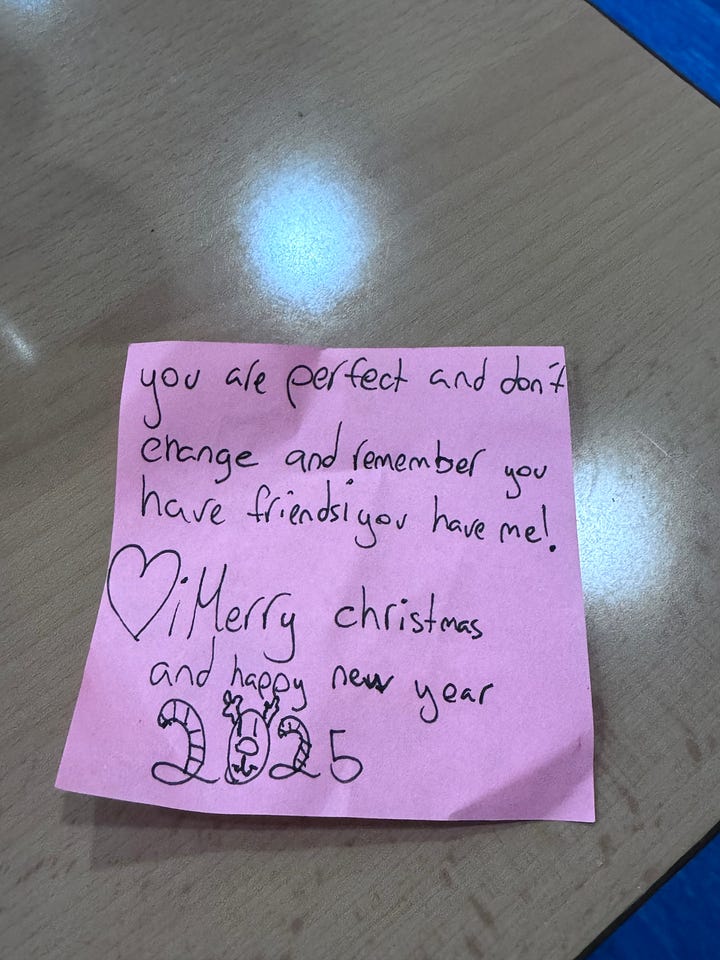 you are perfect and don't
change and remember you
have friends¡you have me!
¡Merry christmas
and happy new year
2025